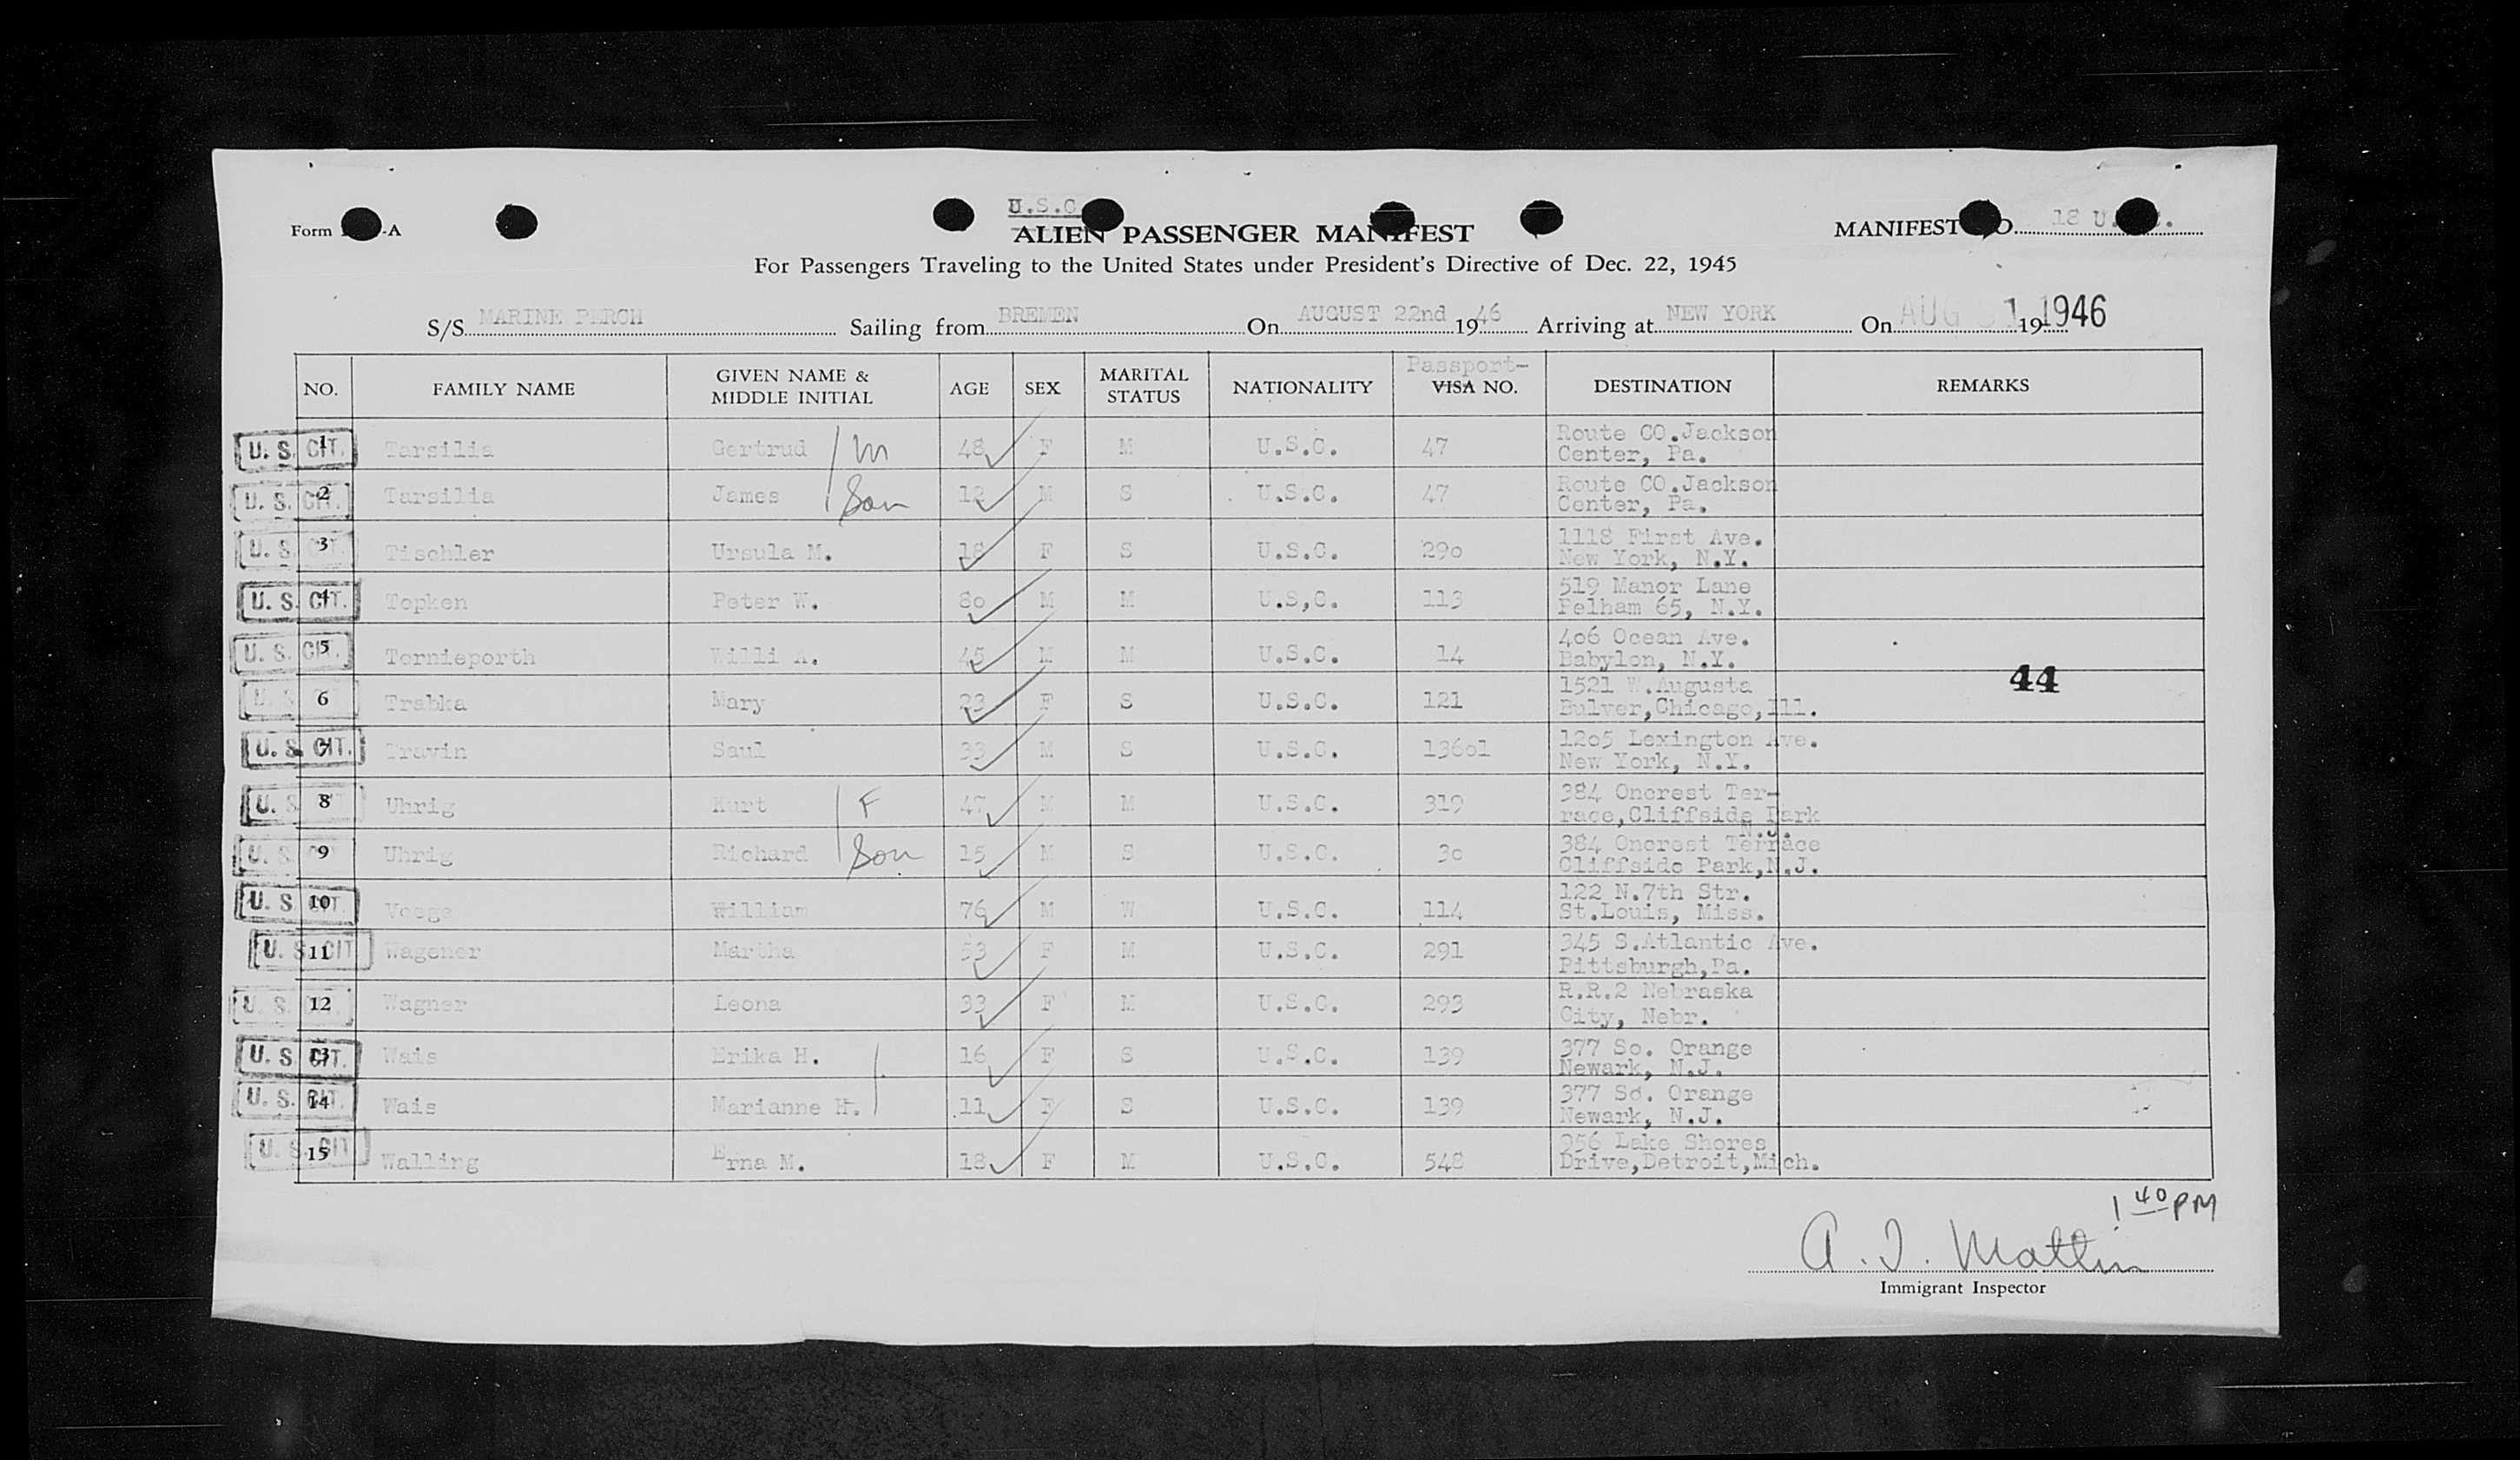 U.S.C
Form -A
ALIEN PASSENGER MANIFEST
MANIFEST O. 18 U.
For Passengers Traveling to the United States under President's Directive of Dec. 22, 1945
S/S MARINE PERCH Sailing from BREMEN On AUGUST 22nd 1946 Arriving at NEW YORK On AUG 31 19 1946
NO. FAMILY NAME GIVEN NAME & MIDDLE INITIAL AGE SEX MARITAL STATUS NATIONALITY Passport- VISA NO. DESTINATION REMARKS
U. S. CIT. 1 Tarsilia Gertrud m 48 F M U.S.C. 47 Route CO.Jackson
Center, Pa.
U. S. CIT. 2 Tarsilia James Son 12 M S U.S.C. 47 Route CO.Jackson
Center, Pa.
U. S. CIT. 3 Tischler Ursula M. 18 F S U.S.C. 290 1118 First Ave.
New York, N.Y.
U. S. CIT. 4 Topken Peter W. 80 M M U.S,C. 113 519 Manor Lane
Pelham 65, N.Y.
U. S. CIT. 5 Tornieporth Willi A. 45 M M U.S.C. 14 406 Ocean Ave.
Babylon, N.Y.
U. S. 6 Trabka Mary 23 F S U.S.C. 121 1521 W.Augusta
Bulver,Chicago,Ill.
44
U. S. CIT. 7 Travin Saul 33 M S U.S.C. 13601 1205 Lexington Ave.
New York, N.Y.
U. S. CIT 8 Uhrig Kurt F 47 M M U.S.C. 319 384 Oncrest Ter-
race,Cliffside Park
N.J.
U. S. CIT 9 Uhrig Richard Son 15 M S U.S.C. 30 384 Oncrest Terrace
Cliffside Park,N.J.
U. S. CIT. 10 Voege William 76 M W U.S.C. 114 122 N.7th Str.
St.Louis, Miss.
U. S. CIT 11 Wagener Martha 53 F M U.S.C. 291 345 S.Atlantic Ave.
Pittsburgh,Pa.
U. S. 12 Wagner Leona 33 F M U.S.C. 293 R.R.2 Nebraska
City, Nebr.
U. S. CIT. 13 Wais Erika H. 16 F S U.S.C. 139 377 So. Orange
Newark, N.J.
U. S. CIT. 14 Wais Marianne H. 11 F S U.S.C. 139 377 So. Orange
Newark, N.J.
U. S. CIT 15 Walling Erna M. 18 F M U.S.C. 548 956 Lake Shores
Drive,Detroit,Mich.
1 40 PM
A. I. Mattin
Immigrant Inspector